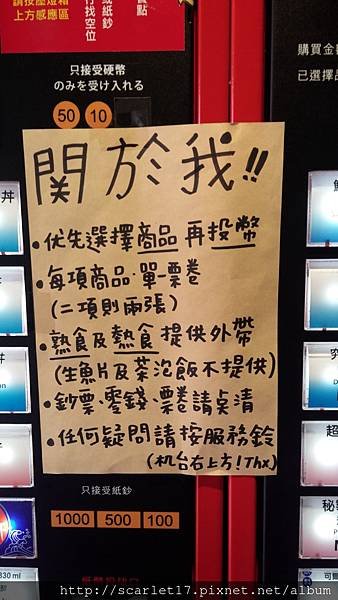 請按壓燈箱
上方感應區
或紙鈔
行找空位
餐點
購買金
已選擇
只接受硬幣
のみを受け入れる
50 10
關於我!!
•优先選擇商品 再投幣
•每項商品·單一票卷
(二項則兩張)
•熟食及熱食提供外帶
(生魚片及茶泡飯不提供)
•鈔票·零錢·票卷請点清
•任何疑問請按服務鈴
(机台右上方!Thx)
丼
只接受紙鈔
1000 500 100
超
秘
330 ml
http://scarlet17.pixnet.net/album